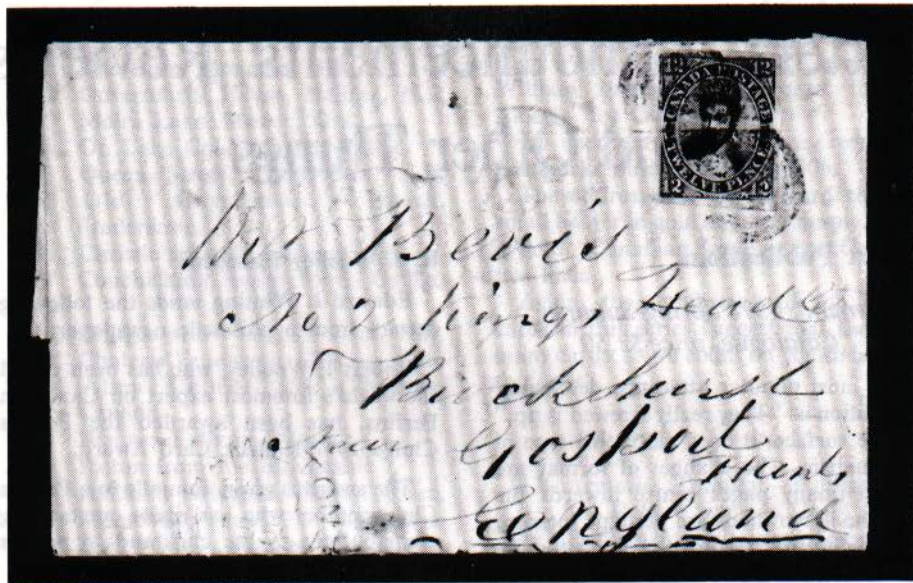 12 12
CANADA POSTAGE
TWELVE PENCE
12
Bevis
No 2 Kings Head Ct
Buckhurst
Near Gosport
Hants
England